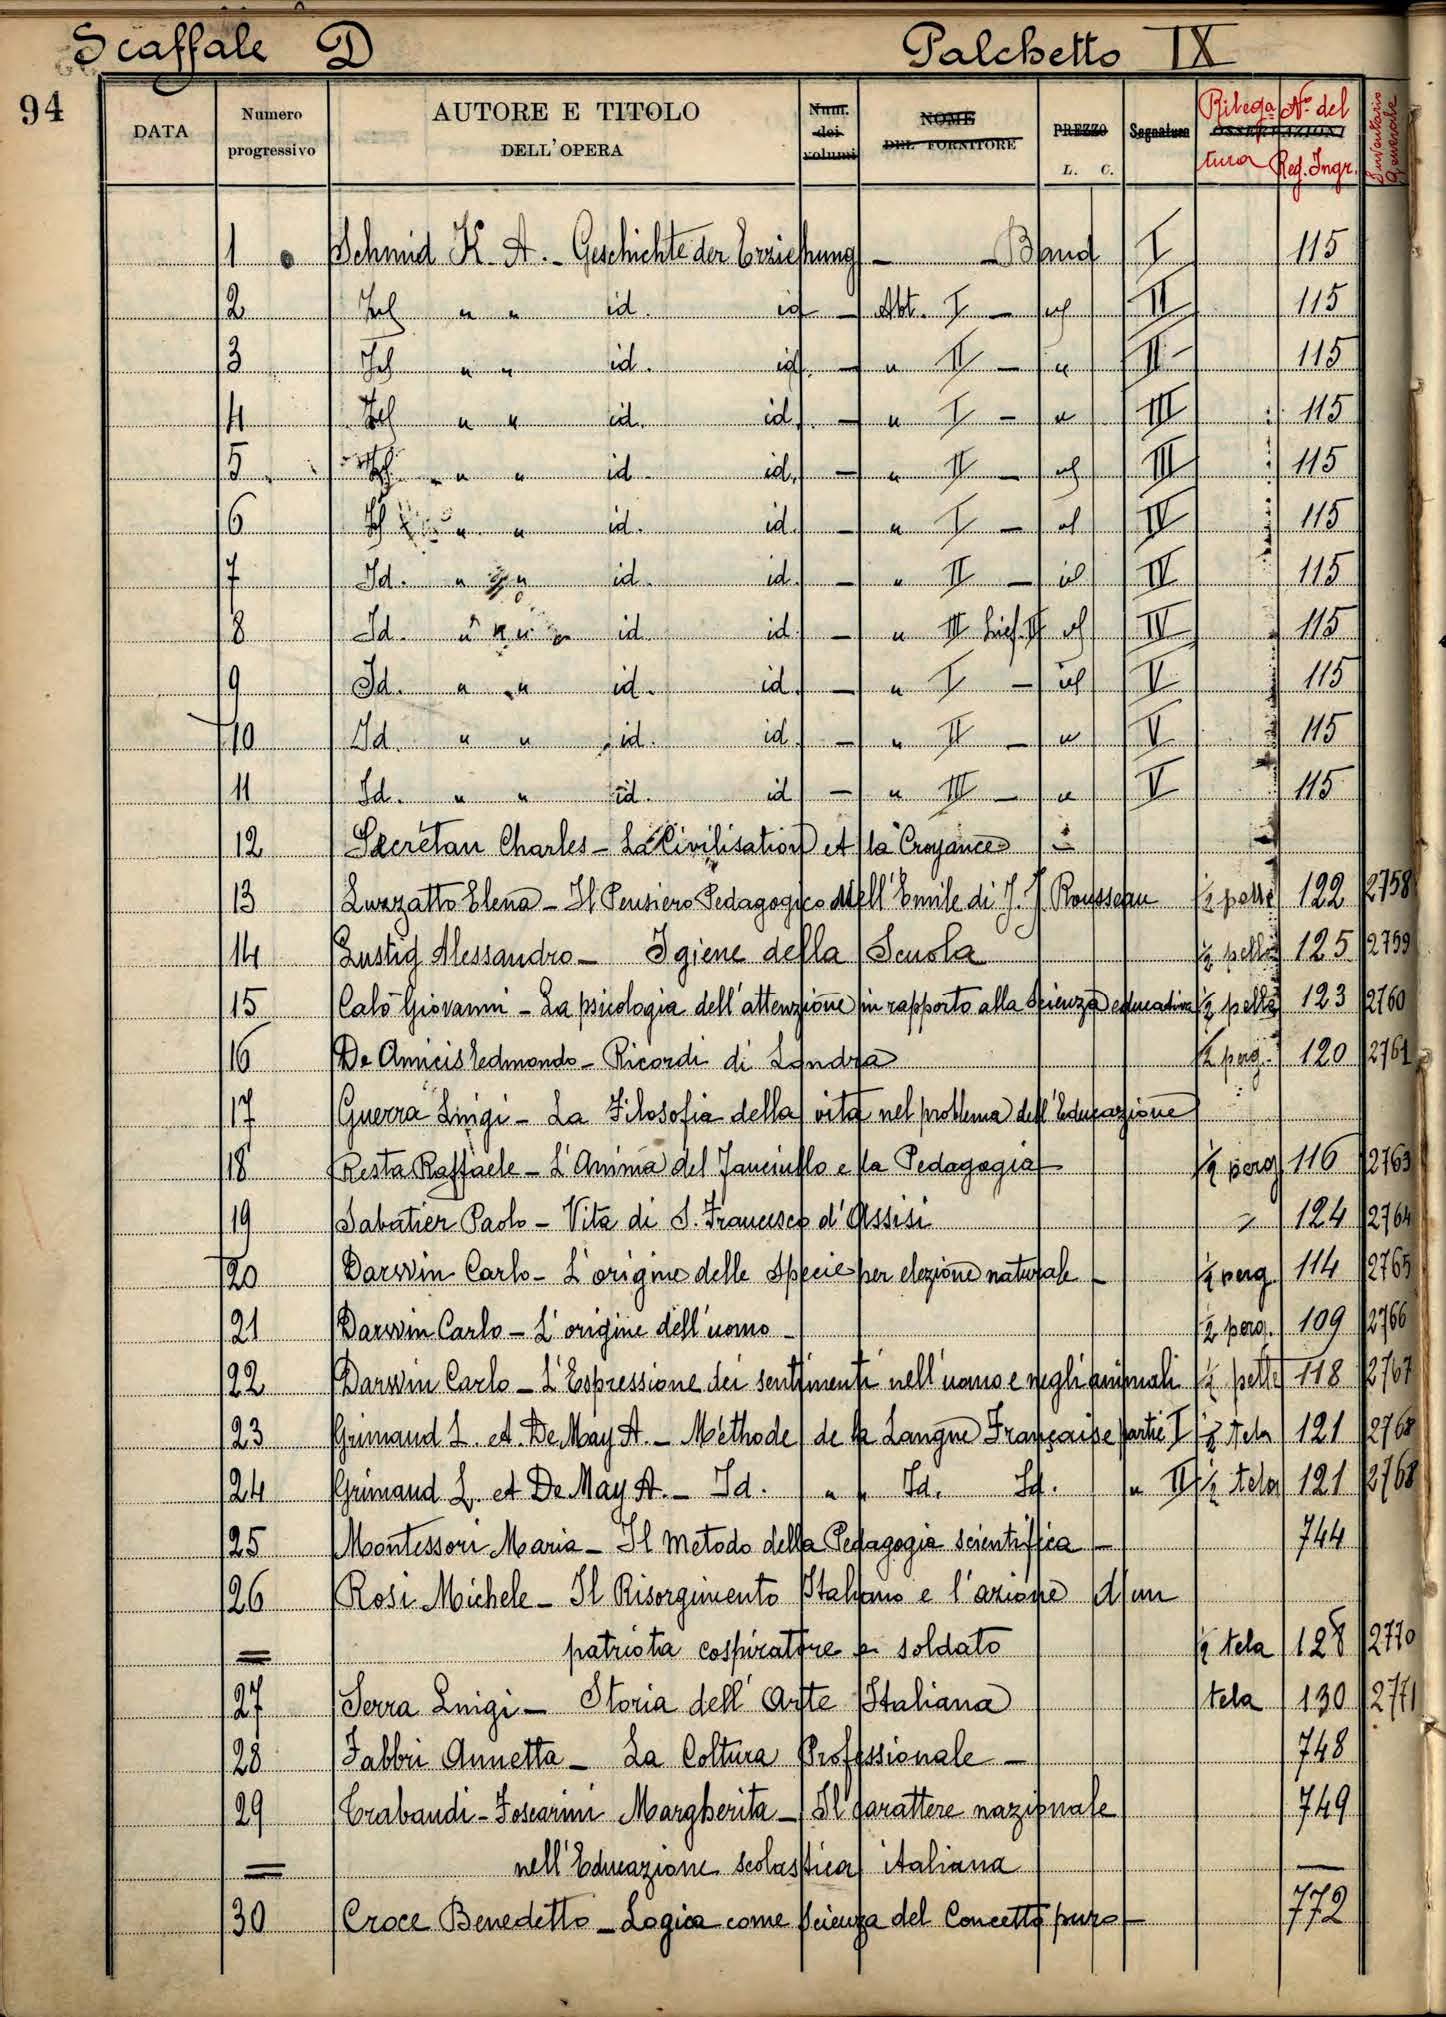 Scaffale D Palchetto IX
94
DATA Numero progressivo AUTORE E TITOLO DELL'OPERA Num. dei volumi NOME DEL FORNITORE PREZZO L. C. Segnatura OSSERVAZIONI Rilega tura N° del Reg. Ingr. Inventario Generale
1 Schmid K. A. - Geschichte der Erziehung - - Band I 115
2 Id " " id. id - Abt. I - id II 115
3 Id " " id. id. - " II - " II 115
4 Id " " id. id. - " I - " III 115
5 Id " " id. id. - " II - id III 115
6 Id " " id. id. - " I - id IV 115
7 Id. " " id. id. - " II - id IV 115
8 Id. " " id. id. - " III Lief. II id IV 115
9 Id. " " id. id. - " I - id V 115
10 Id. " " id. id. - " II - " V 115
11 Id. " " id. id - " III - " V 115
12 Secrétan Charles - La Civilisation et la Croyance -
13 Luzzatto Elena - Il Pensiero Pedagogico dell'Emile di J. J. Rousseau ½ pelle 122 2758
14 Lustig Alessandro - Igiene della Scuola ½ pelle 125 2759
15 Calò Giovanni - La psicologia dell'attenzione in rapporto alla Scienza educativa ½ pelle 123 2760
16 De Amicis Edmondo - Ricordi di Londra ½ perg. 120 2761
17 Guerra Luigi - La Filosofia della vita nel problema dell'Educazione
18 Resta Raffaele - L'Anima del Fanciullo e la Pedagogia - ½ perg 116 2763
19 Sabatier Paolo - Vita di S. Francesco d'Assisi " 124 2764
20 Darwin Carlo - L'origine delle Specie per elezione naturale - ½ perg. 114 2765
21 Darwin Carlo - L'origine dell'uomo - ½ perg. 109 2766
22 Darwin Carlo - L'Espressione dei sentimenti nell'uomo e negli animali ½ pelle 118 2767
23 Grimaud L. et De May A. - Méthode de la Langue Française partie I ½ tela 121 2768
24 Grimaud L. et De May A. - Id. " " Id. Id. " II ½ tela 121 2768
25 Montessori Maria - Il metodo della Pedagogia scientifica - 744
26 Rosi Michele - Il Risorgimento Italiano e l'azione d'un
= patriota cospiratore e soldato ½ tela 128 2770
27 Serra Luigi - Storia dell'Arte Italiana tela 130 2771
28 Fabbri Annetta - La Coltura Professionale - 748
29 Trabaudi-Foscarini Margherita - Il carattere nazionale 749
= nell'Educazione scolastica italiana -
30 Croce Benedetto - Logica come Scienza del Concetto puro - 772